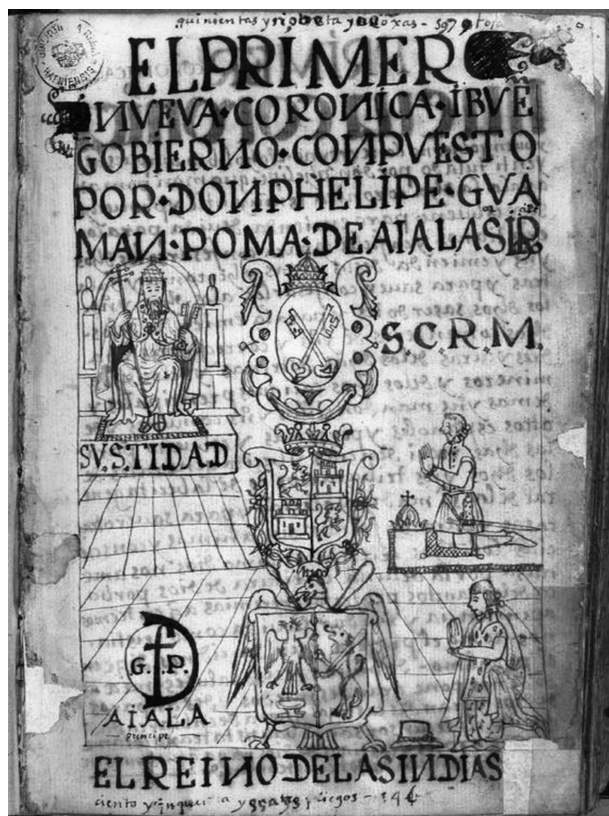 quinientas y nobenta y foxas - 597 foxas
EL PRIMER
NVEVA·CORONICA·IBVĒ
GOBIERNO·CONPVESTO
POR·DON PHELIPE·GVA
MAN·POMA·DE AIALA SR
S.C.R.M.
SV.S.TIDAD
G. P.
AIALA
principe
EL REINO DE LAS INDIAS
ciento y pliegos - 146